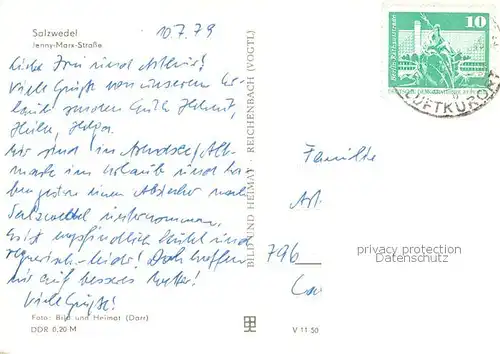 Salzwedel
Jenny-Marx-Straße
10.7.79
Viele Grüße von unserem Ur-
laub senden Euch Helmut,
Helga.
Wir sind in Arendsee/Alt-
mark im Urlaub und ha-
ben gestern einen Abstecher nach
Salzwedel unternommen.
Es ist empfindlich kühl und
regnerisch - leider! Doch hoffen
wir auf besseres Wetter!
Viele Grüße!
Foto: Bild und Heimat (Darr)
DDR 0,20 M
BILD UND HEIMAT · REICHENBACH (VOGTL)
V 11 50
10
LUFTKURORT
Familie
796
privacy protection
Datenschutz